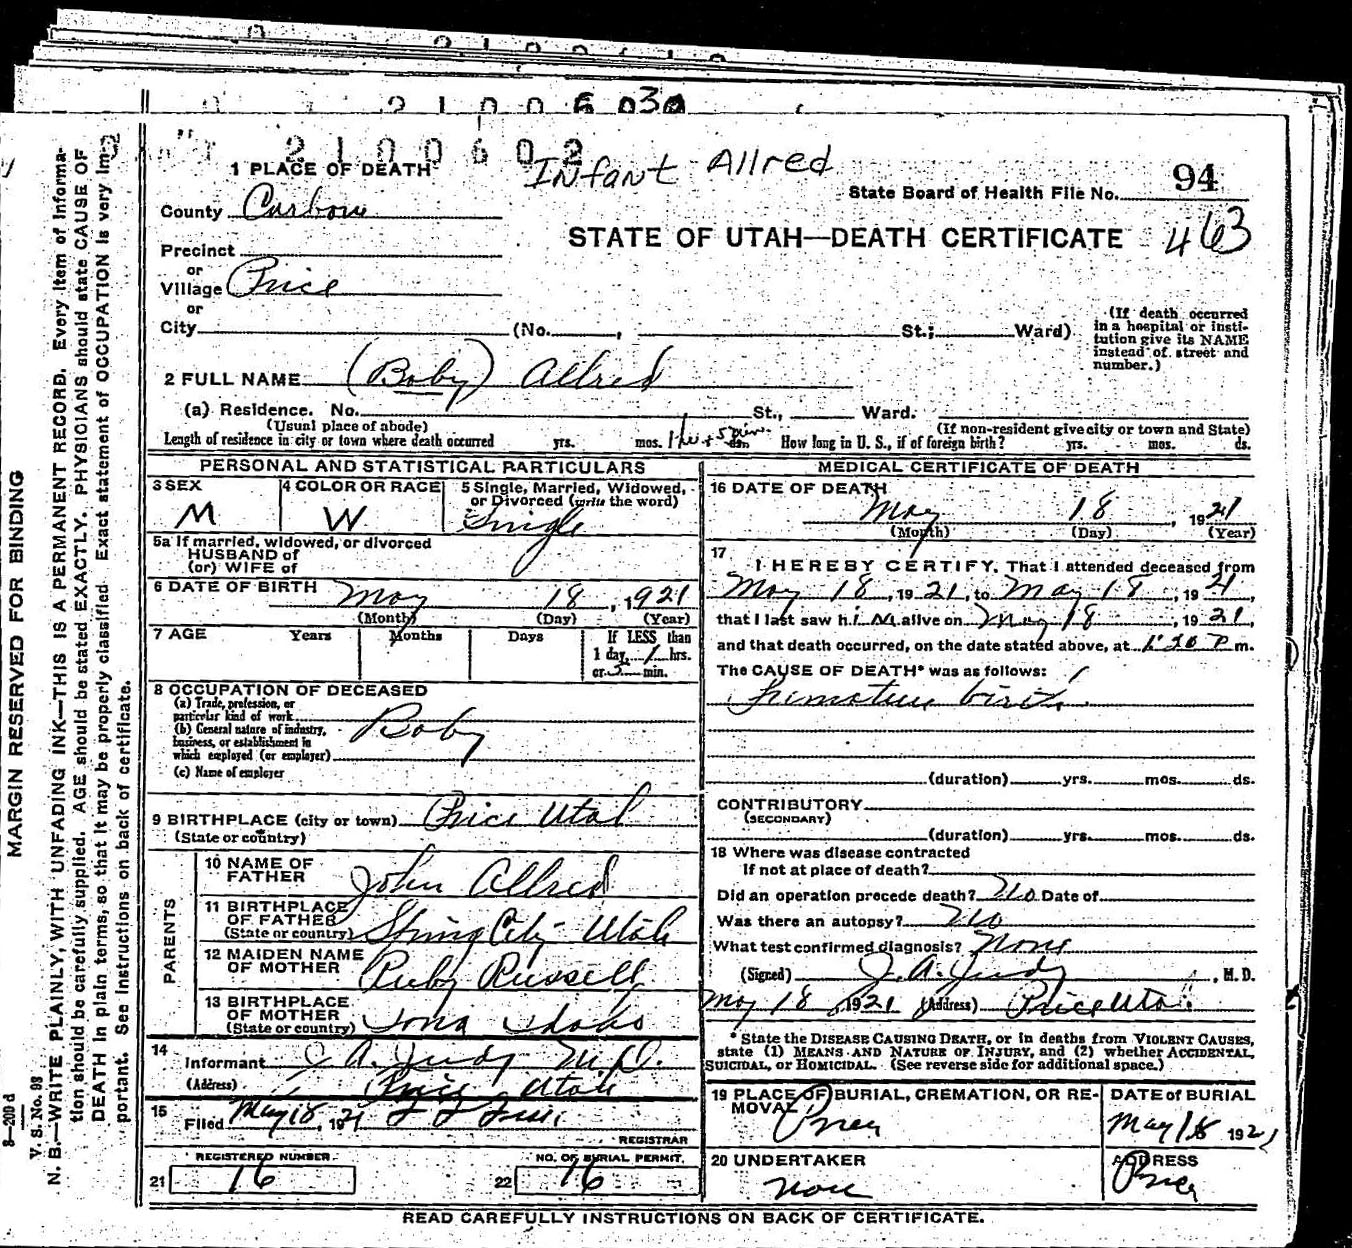 6030
2100602
Infant Allred
1 PLACE OF DEATH
State Board of Health File No. 94
County Carbon
463
STATE OF UTAH—DEATH CERTIFICATE
Precinct
or
Village Price
or
City (No. , St.; Ward)
(If death occurred in a hospital or institution give its NAME instead of street and number.)
2 FULL NAME (Baby) Allred
(a) Residence. No. St., Ward.
(Usual place of abode) (If non-resident give city or town and State)
Length of residence in city or town where death occurred yrs. mos. ds. How long in U. S., if of foreign birth? yrs. mos. ds.
PERSONAL AND STATISTICAL PARTICULARS
3 SEX M
4 COLOR OR RACE W
5 Single, Married, Widowed, or Divorced (write the word) Single
5a If married, widowed, or divorced
HUSBAND of
(or) WIFE of
6 DATE OF BIRTH May 18, 1921
(Month) (Day) (Year)
7 AGE Years Months Days If LESS than
1 day, 1 hrs.
or 5 min.
8 OCCUPATION OF DECEASED
(a) Trade, profession, or
particular kind of work
Baby
(b) General nature of industry,
business, or establishment in
which employed (or employer)
(c) Name of employer
9 BIRTHPLACE (city or town) Price Utah
(State or country)
PARENTS
10 NAME OF FATHER John Allred
11 BIRTHPLACE OF FATHER (State or country) Spring City Utah
12 MAIDEN NAME OF MOTHER Ruby Russell
13 BIRTHPLACE OF MOTHER (State or country) Idaho
14 Informant J. A. Judy M.D.
(Address) Price Utah
15 Filed May 18, 1921
REGISTRAR
REGISTERED NUMBER.
21 16
NO. OF BURIAL PERMIT.
22 16
MEDICAL CERTIFICATE OF DEATH
16 DATE OF DEATH
May 18, 1921
(Month) (Day) (Year)
17 I HEREBY CERTIFY, That I attended deceased from
May 18, 1921, to May 18, 1921,
that I last saw him alive on May 18, 1921,
and that death occurred, on the date stated above, at 1:20 P m.
The CAUSE OF DEATH* was as follows:
Premature birth
(duration) yrs. mos. ds.
CONTRIBUTORY
(SECONDARY)
(duration) yrs. mos. ds.
18 Where was disease contracted
If not at place of death?
Did an operation precede death? No Date of
Was there an autopsy? No
What test confirmed diagnosis? None
(Signed) J. A. Judy, M. D.
May 18, 1921 (Address) Price Utah
* State the DISEASE CAUSING DEATH, or in deaths from VIOLENT CAUSES,
state (1) MEANS AND NATURE OF INJURY, and (2) whether ACCIDENTAL,
SUICIDAL, or HOMICIDAL. (See reverse side for additional space.)
19 PLACE OF BURIAL, CREMATION, OR REMOVAL Price
DATE of BURIAL
May 18 1921
20 UNDERTAKER
None
ADDRESS
Price
READ CAREFULLY INSTRUCTIONS ON BACK OF CERTIFICATE.
MARGIN RESERVED FOR BINDING
8—200 d
V. S. No. 83
N. B.—WRITE PLAINLY, WITH UNFADING INK—THIS IS A PERMANENT RECORD. Every item of informa-
tion should be carefully supplied. AGE should be stated EXACTLY. PHYSICIANS should state CAUSE OF
DEATH in plain terms, so that it may be properly classified. Exact statement of OCCUPATION is very im-
portant. See instructions on back of certificate.